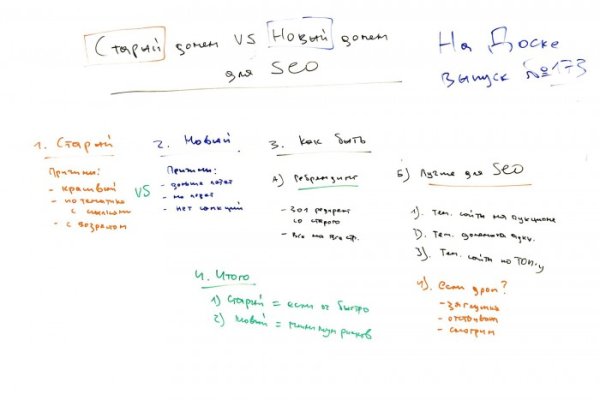 Старый домен VS Новый домен
для SEO
На Доске
выпуск №173
1. Старый
Причины:
- красивый
- по тематике
с ссылками
- с возрастом
VS
2. Новый
Причины:
- дольше
- не
- нет санкций
3. Как быть
А) Ребрендинг
- 301 редирект
со старого
- Все на все стр.
Б) Лучше для SEO
1). Тем. сайты на аукционе
2). Тем. домены аукц.
3). Тем. сайты по ТОП-у
4). если дроп?
- заглушка
- отстоять
- смотрим
4. Итого
1) Старый = если ок быстро
2) Новый = минимум рисков